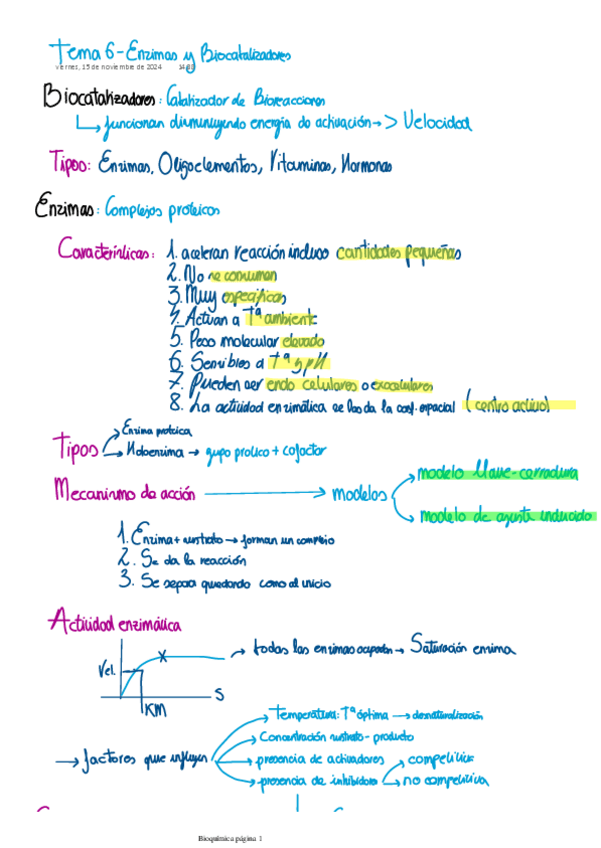 Tema 6 - Enzimas y Biocatalizadores
viernes, 15 de noviembre de 2024
Biocatalizadores: Catalizador de Bioreacciones
funcionan disminuyendo energia de activación → > Velocidad
Tipos: Enzimas, Oligoelementos, Vitaminas, Hormonas
Enzimas: Complejos proteicos
Características: 1. aceleran reacción incluso cantidades pequeñas
2. No se consumen
3. Muy específicas
4. Actuan a Tª ambiente
5. Peso molecular elevado
6. Sensibles a Tª y pH
7. Pueden ser endo celulares o exocelulares
8. La actividad enzimática se las da la conf. espacial (centro activo)
Tipos
Enzima proteica
Holoenzima → grupo proteico + cofactor
Mecanismo de acción → modelos
modelo llave-cerradura
modelo de ajuste inducido
1. Enzima + sustrato → forman un complejo
2. Se da la reacción
3. Se separa quedando como al inicio
Actividad enzimática
Vel.
X
→ todas las enzimas ocupadas → Saturación enzima
S
KM
→ factores que influyen
Temperatura: Tª óptima → desnaturalización
Concentración sustrato - producto
presencia de activadores
presencia de inhibidores
competitiva
no competitiva
Bioquímica página 1